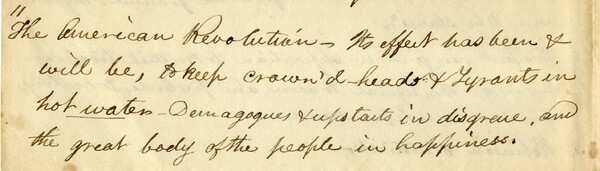 11
The American Revolution – Its effect has been &
will be, to keep crown'd – heads & Tyrants in
hot water – Demagogues & upstarts in disgrace, and
the great body of the people in happiness.